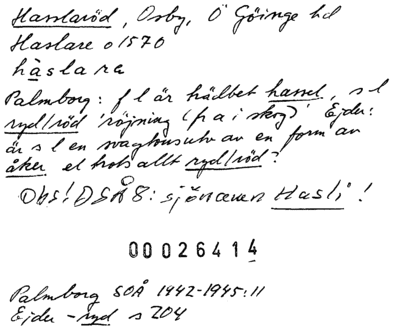 Hasslaröd, Osby, Ö Göinge hd
Haslare o 1570
hàslara
Palmborg: f l är trädbet hassel, s l
ryd/röd 'röjning (fr a i skog)' Ejder:
är s l en svagtonsutv av en form av
åker el trots allt ryd/röd?
Obs! DSÅ8: sjönamnen Hasli!
00026414
Palmborg SOÅ 1942-1945:11
Ejder -ryd s 204